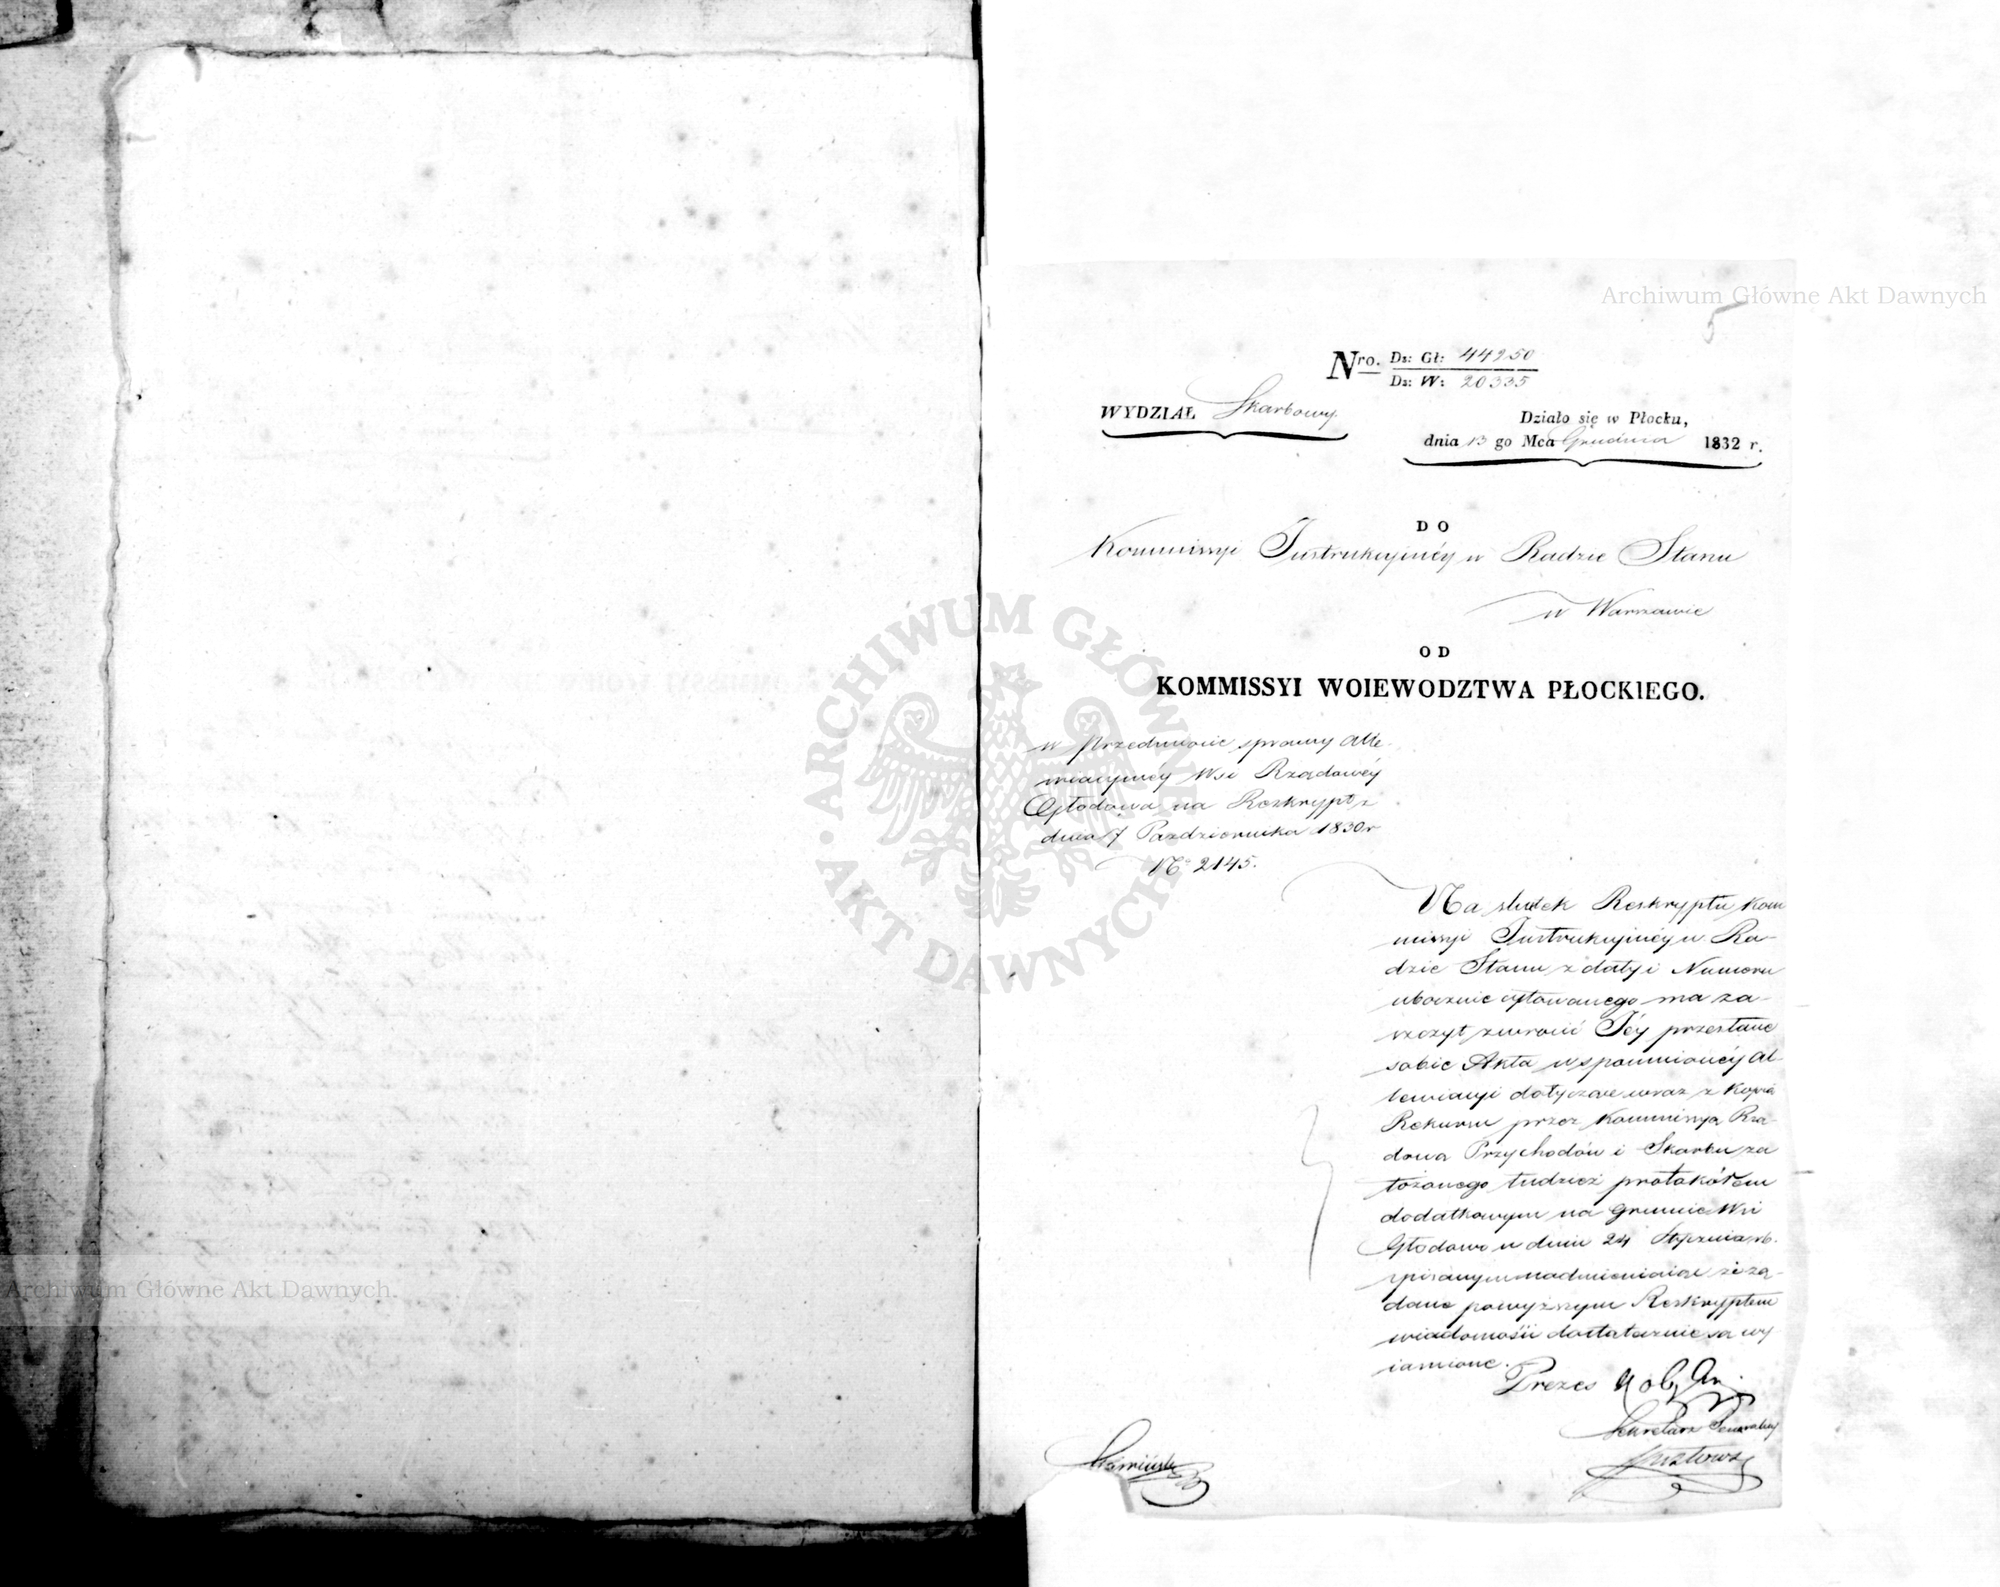 Archiwum Główne Akt Dawnych
5
Nro. Dz: Gł: 44250
Dz: W: 20335
WYDZIAŁ Skarbowy.
Działo się w Płocku,
dnia 13 go Mca Grudnia 1832 r.
DO
Kommissyi Instrukcyinéy w Radzie Stanu
w Warszawie
OD
KOMMISSYI WOIEWODZTWA PŁOCKIEGO.
w przedmiocie sprawy Alle-
wiacyinéy Wsi Rządowéy
Głodowa na Reskrypt z
dnia 7 Października 1830 r
No 2145.
Na skutek Reskryptu Kom
missyi Instrukcyinéy w Ra-
dzie Stanu z daty i Numeru
ubocznie cytowanego ma za-
szczyt zwrócić Jéy przesłane
sobie Akta wspomnionéy Al-
lewiacyi dotyczące wraz z Kopią
Rekursu przez Kommissyą Rzą-
dową Przychodów i Skarbu za
łożonego tudzież protokółem
dodatkowym na gruncie Wsi
Głodowo w dniu 24 Stycznia rb.
spisanym nadmieniaiąc że żą-
dane powyższym Reskryptem
wiadomości dostatecznie są wy
iaśnione.
Prezes
Sekretarz Generalny
ARCHIWUM GŁÓWNE AKT DAWNYCH
Archiwum Główne Akt Dawnych.